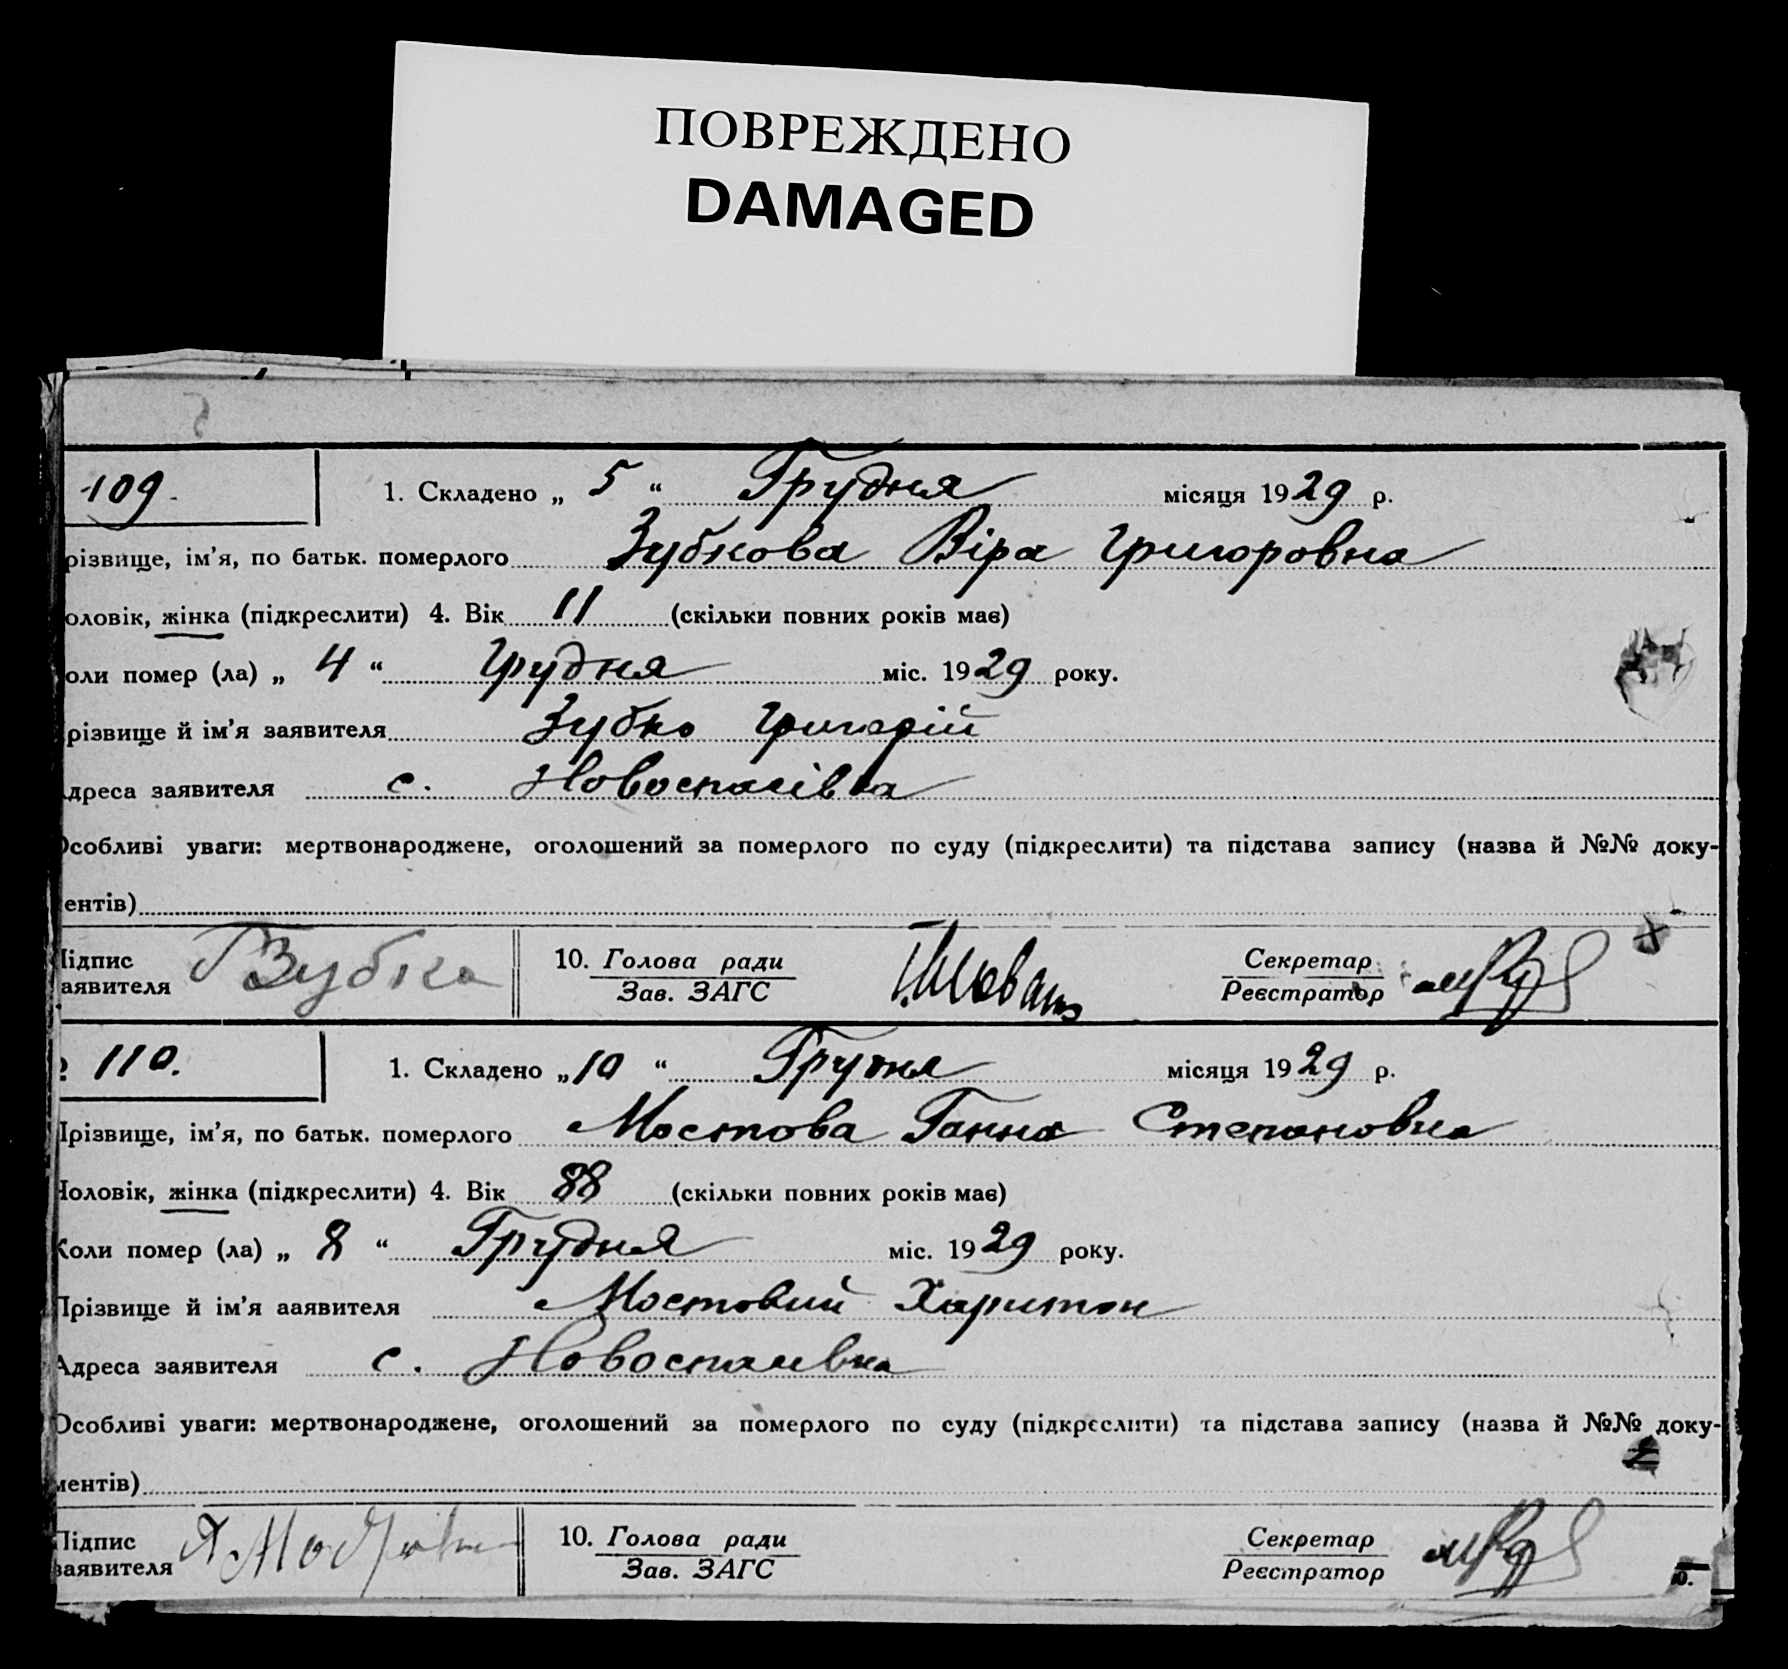 ПОВРЕЖДЕНО
DAMAGED
109. 1. Складено „ 5 “ Грудня місяця 1929 р.
різвище, ім’я, по батьк. померлого Зубкова Віра Григоровна
оловік, жінка (підкреслити) 4. Вік 11 (скільки повних років має)
оли помер (ла) „ 4 “ Грудня міс. 1929 року.
різвище й ім’я заявителя Зубко Григорій
дреса заявителя с. Новоспасівка
Особливі уваги: мертвонароджене, оголошений за померлого по суду (підкреслити) та підстава запису (назва й №№ доку-
ентів)
Підпис заявителя Г Зубко 10. Голова ради Зав. ЗАГС Секретар Реєстратор
110. 1. Складено „10 “ Грудня місяця 1929 р.
Прізвище, ім’я, по батьк. померлого Мостова Ганна Степановна
Чоловік, жінка (підкреслити) 4. Вік 88 (скільки повних років має)
Коли помер (ла) „ 8 “ Грудня міс. 1929 року.
Прізвище й ім’я ааявителя Мостовий Харитон
Адреса заявителя с. Новоспасівка
Особливі уваги: мертвонароджене, оголошений за померлого по суду (підкреслити) та підстава запису (назва й №№ доку-
ментів)
Підпис заявителя 10. Голова ради Зав. ЗАГС Секретар Реєстратор